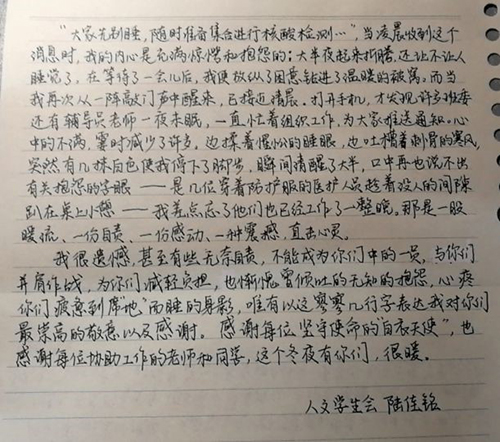 “大家先别睡，随时准备集合进行核酸检测…”，当凌晨收到这个
消息时，我的内心是充满惊愕和抱怨的：大半夜起来折腾，还让不让人
睡觉了。在等待了一会儿后，我便放纵了困意钻进了温暖的被窝。而当
我再次从一阵敲门声中醒来，已接近清晨。打开手机，才发现许多班委
还有辅导员老师一夜未眠，一直忙着组织工作，为大家推送通知。心
中的不满，霎时减少了许多，边揉着惺忪的睡眼，也吐槽着刺骨的寒风，
突然有几抹白色使我停下了脚步，瞬间清醒了大半，口中再也说不出
有关抱怨的字眼——是几位穿着防护服的医护人员趁着没人的间隙
趴在桌上小憩——我差点忘了他们也已经工作了一整晚。那是一股
暖流、一份自责、一份感动、一种震撼，直击心灵。
我很遗憾，甚至有些无奈自责，不能成为你们中的一员，与你们
并肩作战，为你们减轻负担，也惭愧曾倾吐的无知的抱怨，心疼
你们疲惫到席地“而睡的身影，唯有以这寥寥几行字表达我对你们
最崇高的敬意以及感谢。感谢每位坚守使命的“白衣天使”，也
感谢每位协助工作的老师和同学，这个冬夜有你们，很暖。
人文学生会 陆佳铭